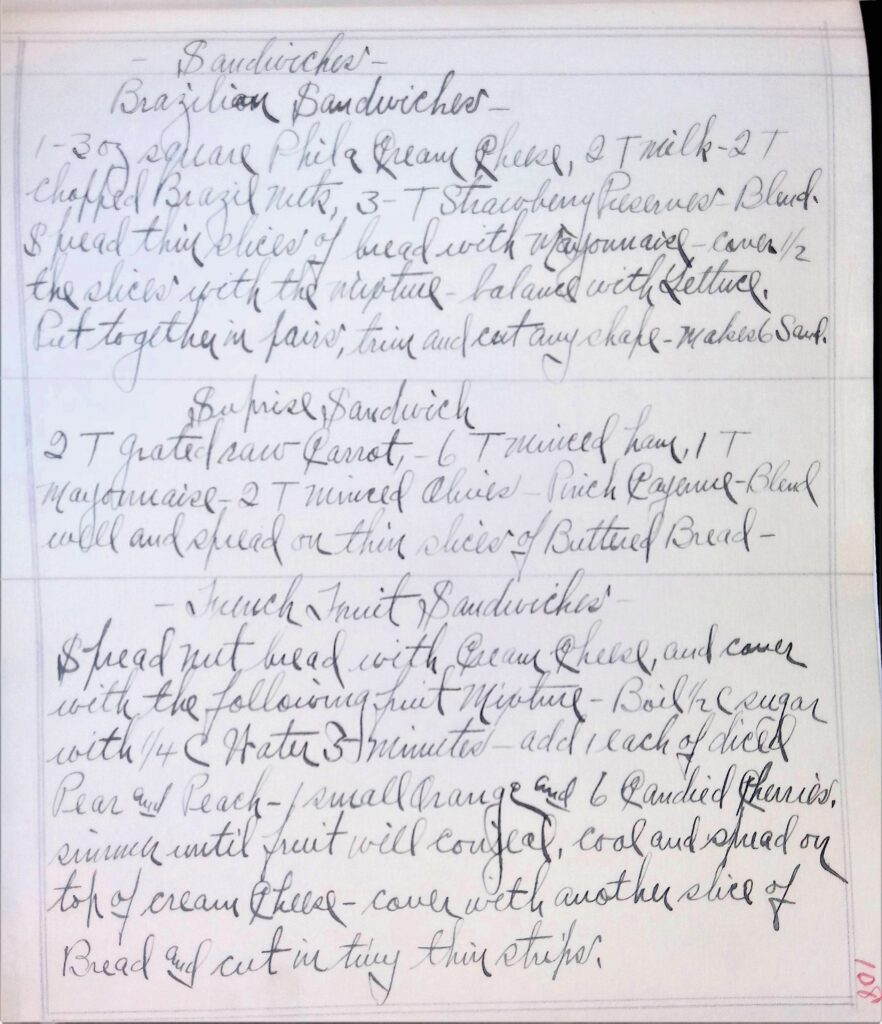 - Sandwiches -
Brazilian Sandwiches -
1-3 oz square Phila Cream Cheese, 2 T milk - 2 T
chopped Brazil nuts, 3 - T Strawberry Preserves - Blend.
Spread thin slices of bread with Mayonnaise - cover 1/2
the slices with the mixture - balance with Lettuce.
Put together in pairs, trim and cut any shape - makes 6 Sand.
Suprise Sandwich
2 T grated raw Carrot, - 6 T minced ham, 1 T
Mayonnaise - 2 T minced Olives - Pinch Cayenne - Blend
well and spread on thin slices of Buttered Bread -
- French Fruit Sandwiches -
Spread nut bread with Cream Cheese, and cover
with the following fruit Mixture - Boil 1/2 C sugar
with 1/4 C Water 5 minutes - add 1 each of diced
Pear and Peach - 1 small Orange and 6 Candied Cherries.
simmer until fruit will congeal, cool and spread on
top of cream Cheese - cover with another slice of
Bread and cut in tiny thin strips.
108